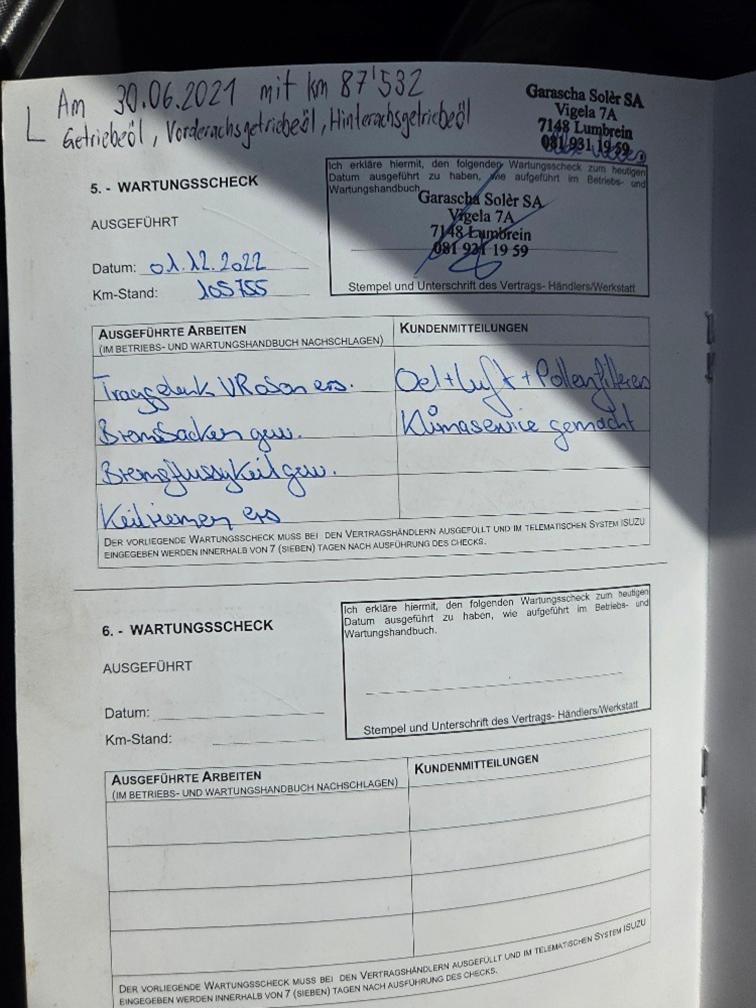 Am 30.06.2021 mit km 87'532
Getriebeöl, Vorderachsgetriebeöl, Hinterachsgetriebeöl
Garascha Solèr SA
Vigela 7A
7148 Lumbrein
081 931 19 59
5. - WARTUNGSSCHECK
AUSGEFÜHRT
Datum: 01.12.2022
Km-Stand: 105755
Ich erkläre hiermit, den folgenden Wartungsscheck zum heutigen
Datum ausgeführt zu haben, wie aufgeführt im Betriebs- und
Wartungshandbuch.
Garascha Solèr SA
Vigela 7A
7148 Lumbrein
081 931 19 59
Stempel und Unterschrift des Vertrags- Händlers/Werkstatt
AUSGEFÜHRTE ARBEITEN
(IM BETRIEBS- UND WARTUNGSHANDBUCH NACHSCHLAGEN)
KUNDENMITTEILUNGEN
Traggelenk VR ers.
Oel+Luft+Pollenfilter
Bremsbacken gew.
Klimaservice gemacht
Bremsflussykeit gew.
Keilriemen ers
DER VORLIEGENDE WARTUNGSSCHECK MUSS BEI DEN VERTRAGSHÄNDLERN AUSGEFÜLLT UND IM TELEMATISCHEN SYSTEM ISUZU
EINGEGEBEN WERDEN INNERHALB VON 7 (SIEBEN) TAGEN NACH AUSFÜHRUNG DES CHECKS.
6. - WARTUNGSSCHECK
AUSGEFÜHRT
Datum:
Km-Stand:
Ich erkläre hiermit, den folgenden Wartungsscheck zum heutigen
Datum ausgeführt zu haben, wie aufgeführt im Betriebs- und
Wartungshandbuch.
Stempel und Unterschrift des Vertrags- Händlers/Werkstatt
AUSGEFÜHRTE ARBEITEN
(IM BETRIEBS- UND WARTUNGSHANDBUCH NACHSCHLAGEN)
KUNDENMITTEILUNGEN
DER VORLIEGENDE WARTUNGSSCHECK MUSS BEI DEN VERTRAGSHÄNDLERN AUSGEFÜLLT UND IM TELEMATISCHEN SYSTEM ISUZU
EINGEGEBEN WERDEN INNERHALB VON 7 (SIEBEN) TAGEN NACH AUSFÜHRUNG DES CHECKS.